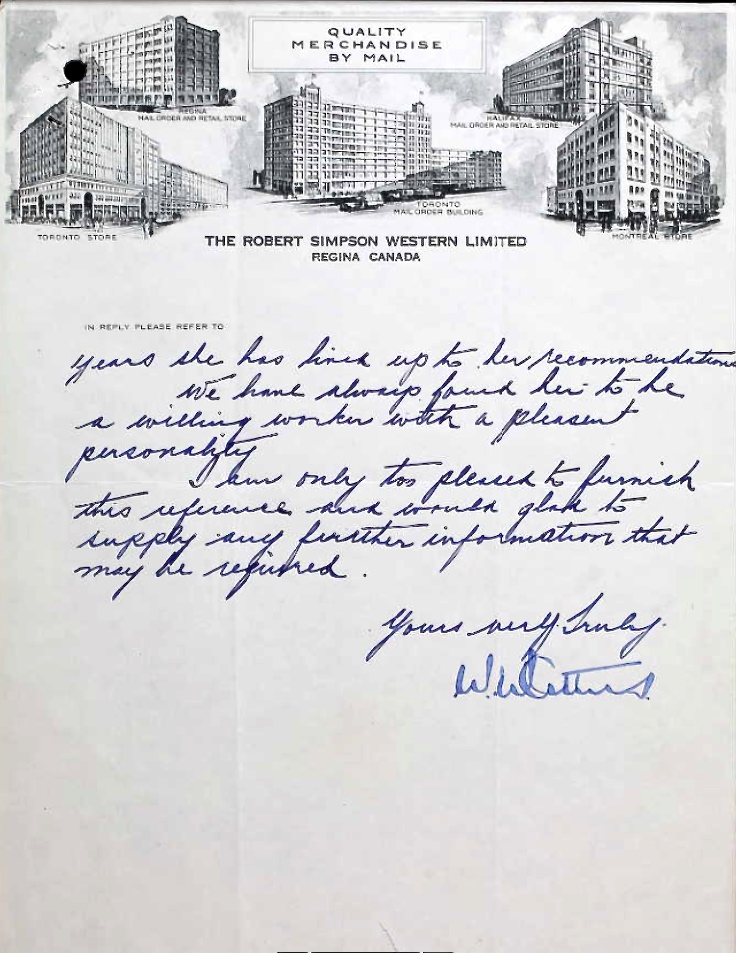 QUALITY
MERCHANDISE
BY MAIL
REGINA
MAIL ORDER AND RETAIL STORE
HALIFAX
MAIL ORDER AND RETAIL STORE
TORONTO
MAIL ORDER BUILDING
TORONTO STORE
MONTREAL STORE
THE ROBERT SIMPSON WESTERN LIMITED
REGINA CANADA
IN REPLY PLEASE REFER TO
years she has lived up to her recommendations
We have always found her to be
a willing worker with a pleasent
personality
I am only too pleased to furnish
this reference and would glad to
supply any further information that
may be required.
Yours very truly.
W.